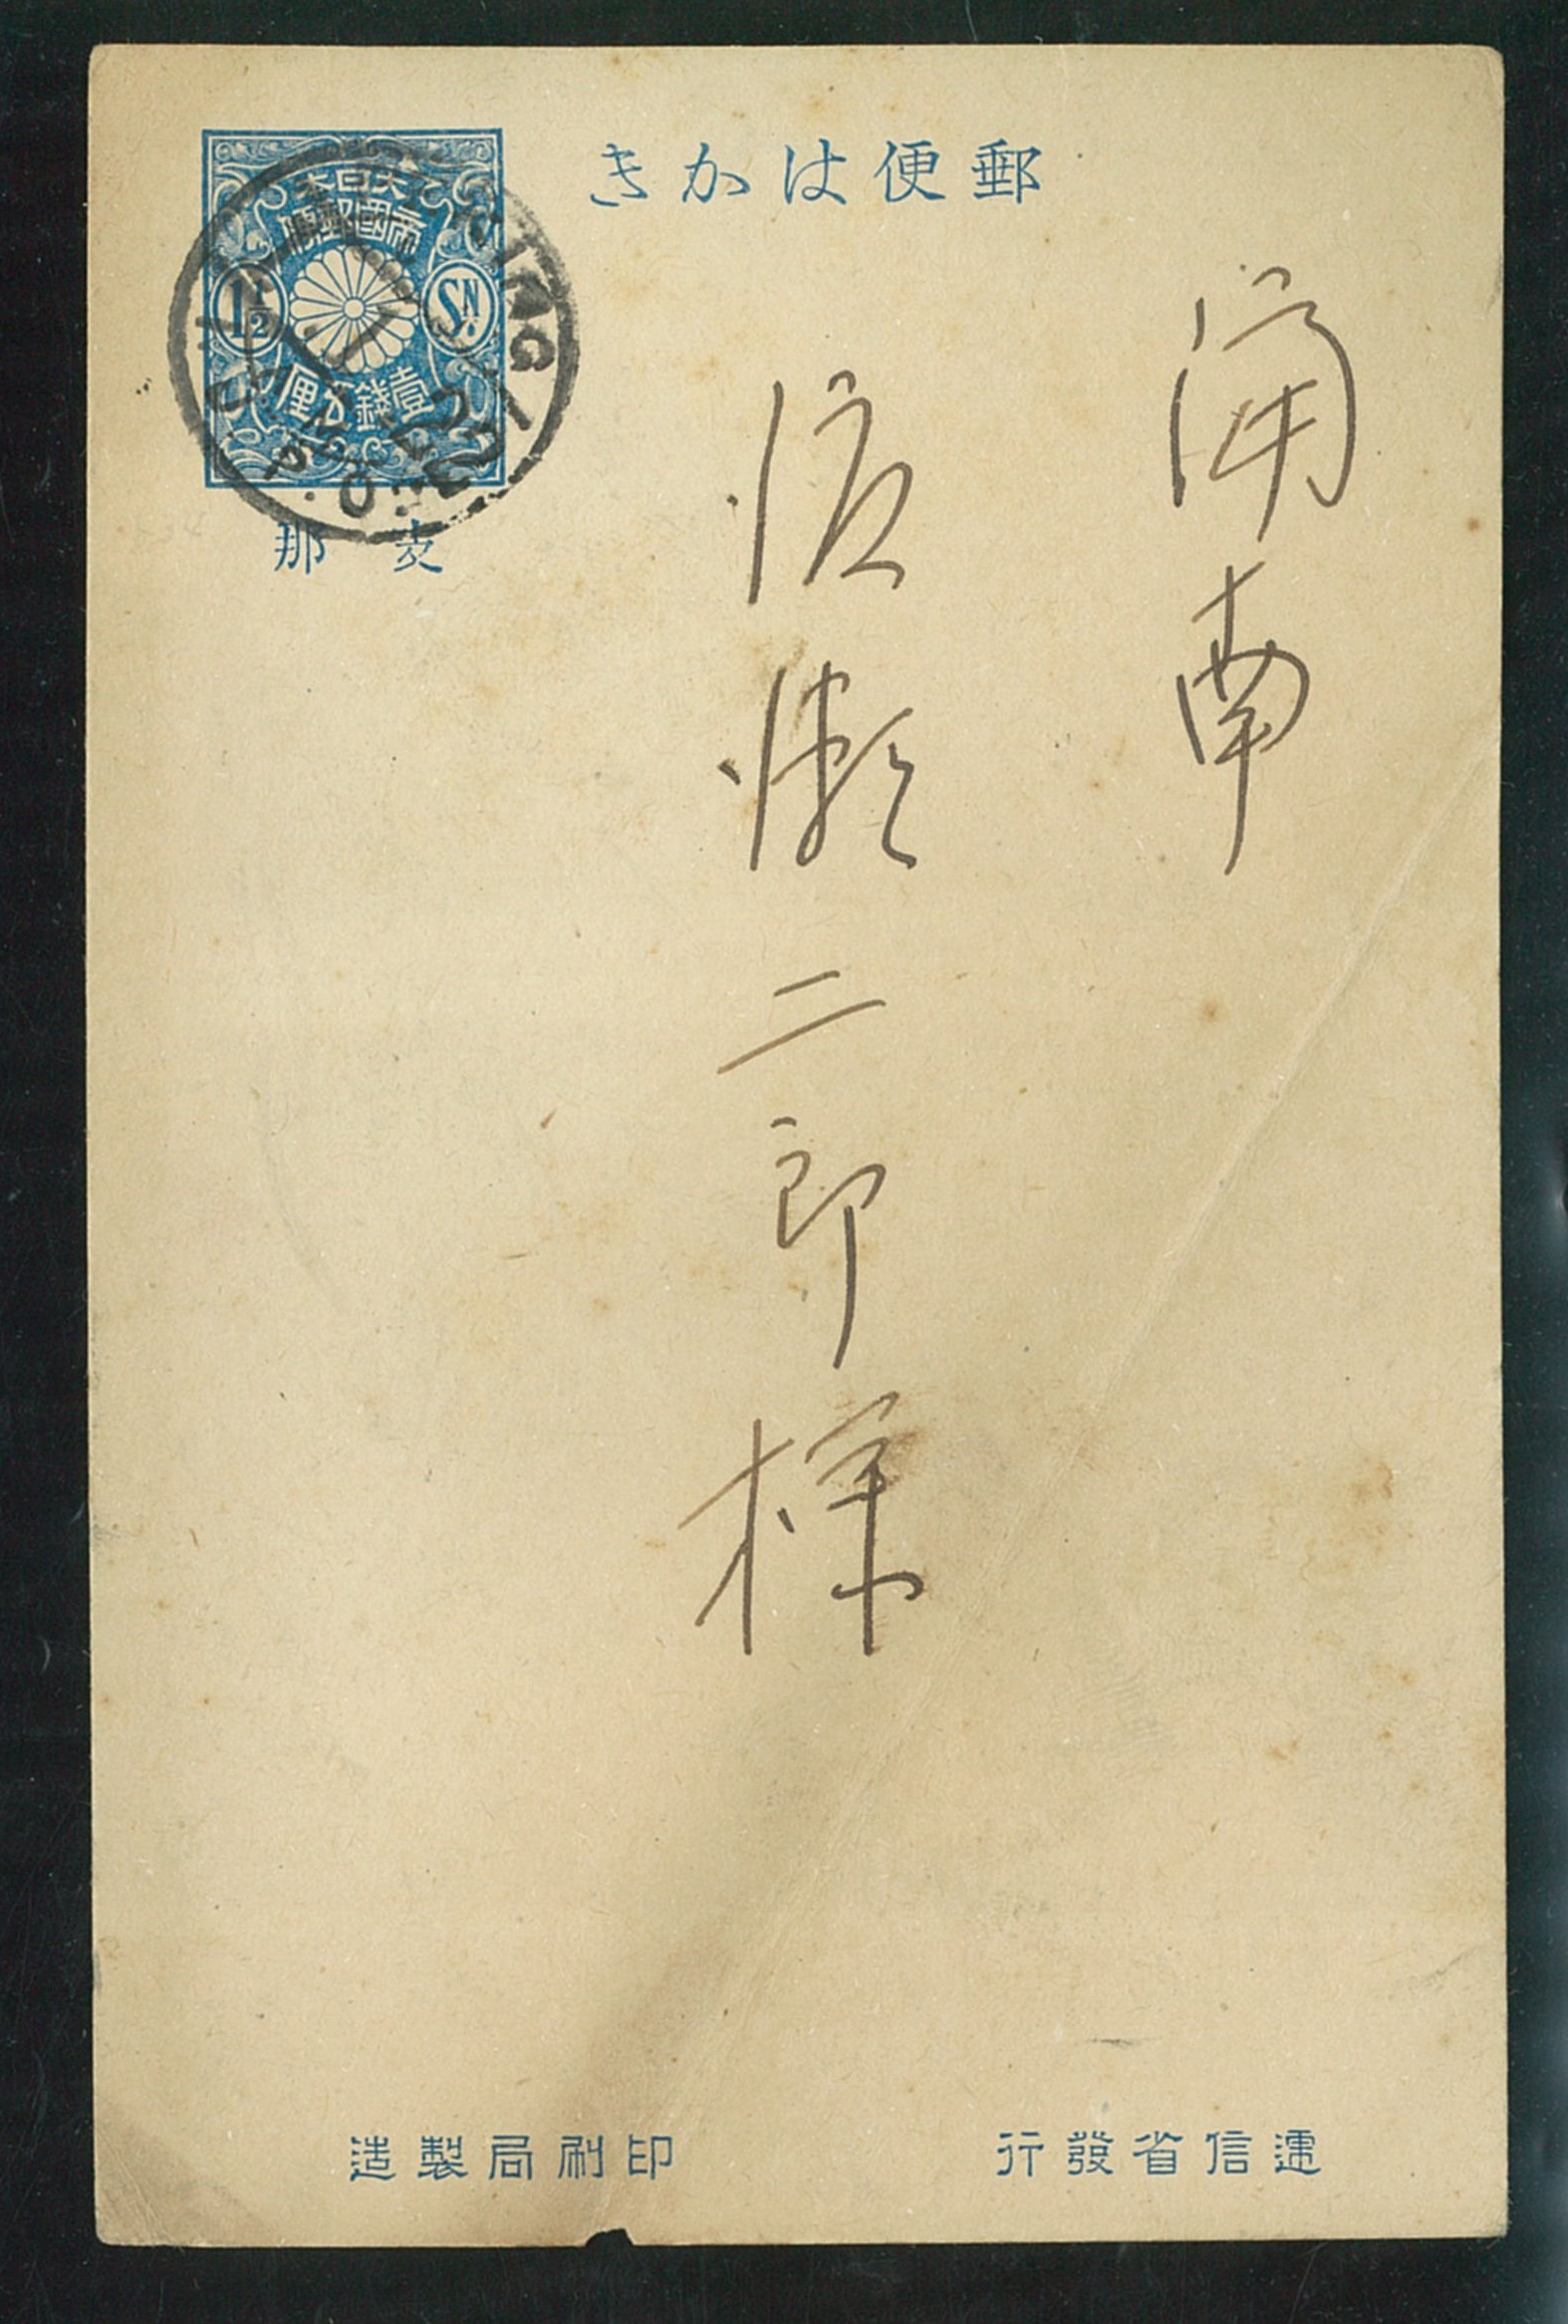 郵便はかき
大日本
帝國郵便
1½ SN.
壹錢五厘
支那
PEKING
I.J.P.O.
濟南
二郎様
逓信省發行
印刷局製造